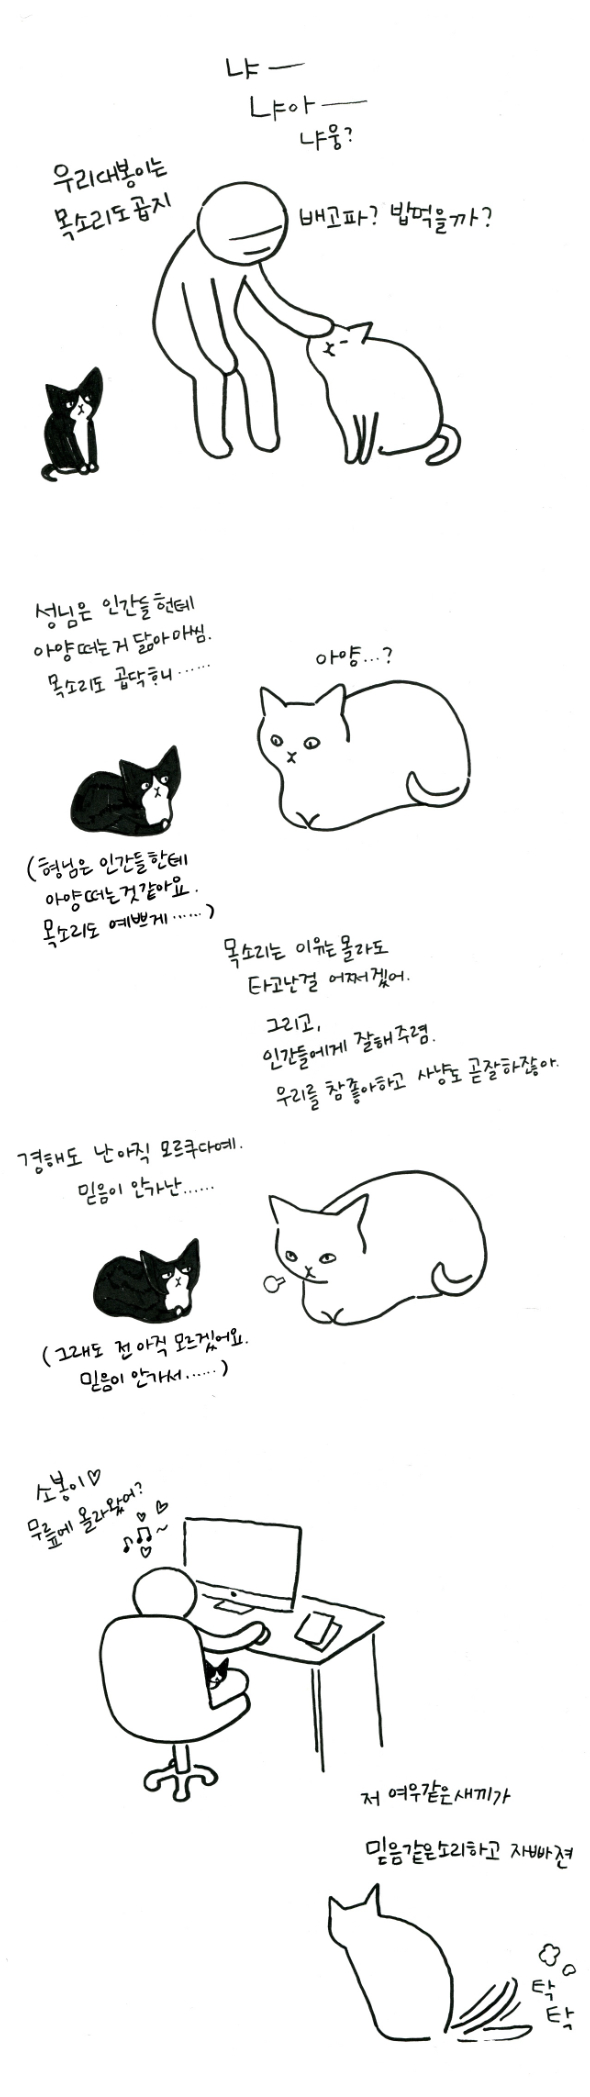 냐ㅡ
냐아ㅡ
냐웅?
우리대봉이는
목소리도곱지
배고파? 밥먹을까?
성님은 인간들헌테
아양떠는거 닮아마씸.
목소리도 곱닥허니……
아양…?
(형님은 인간들한테
아양떠는것같아요.
목소리도 예쁘게……)
목소리는 이유는몰라도
타고난걸 어쩌겠어.
그리고,
인간들에게 잘해주렴.
우리를 참좋아하고 사냥도 곧잘하잖아.
경해도 난아직 모르쿠다예.
믿음이 안가난……
(그래도 전아직 모르겠어요.
믿음이 안가서……)
소봉이♡
무릎에 올라왔어?
저 여우같은새끼가
믿음같은소리하고 자빠젼
탁
탁